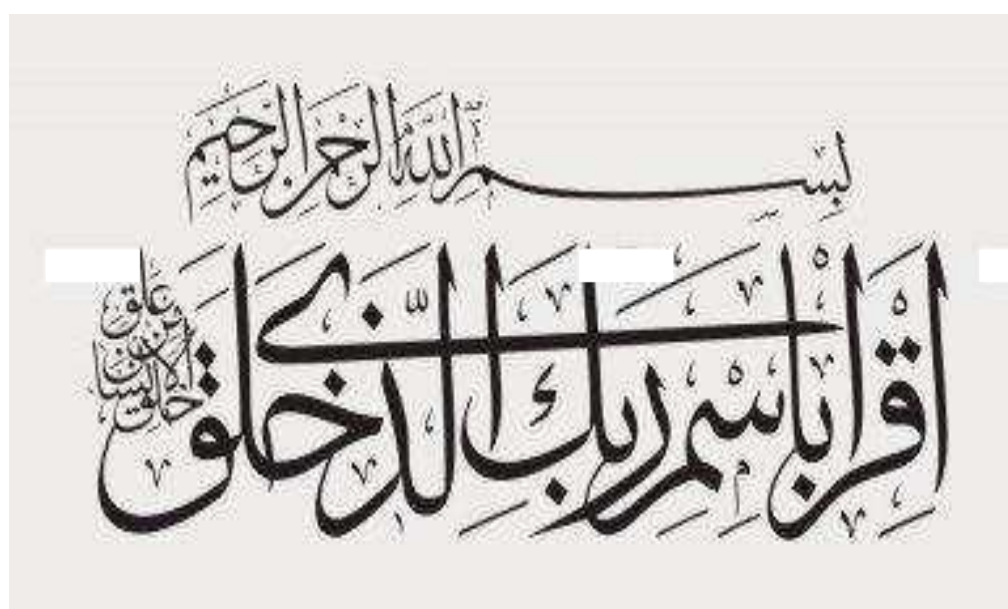 بسم الله الرحمن الرحيم
اقرا باسم ربك الذي خلق
خلق الإنسان من علق